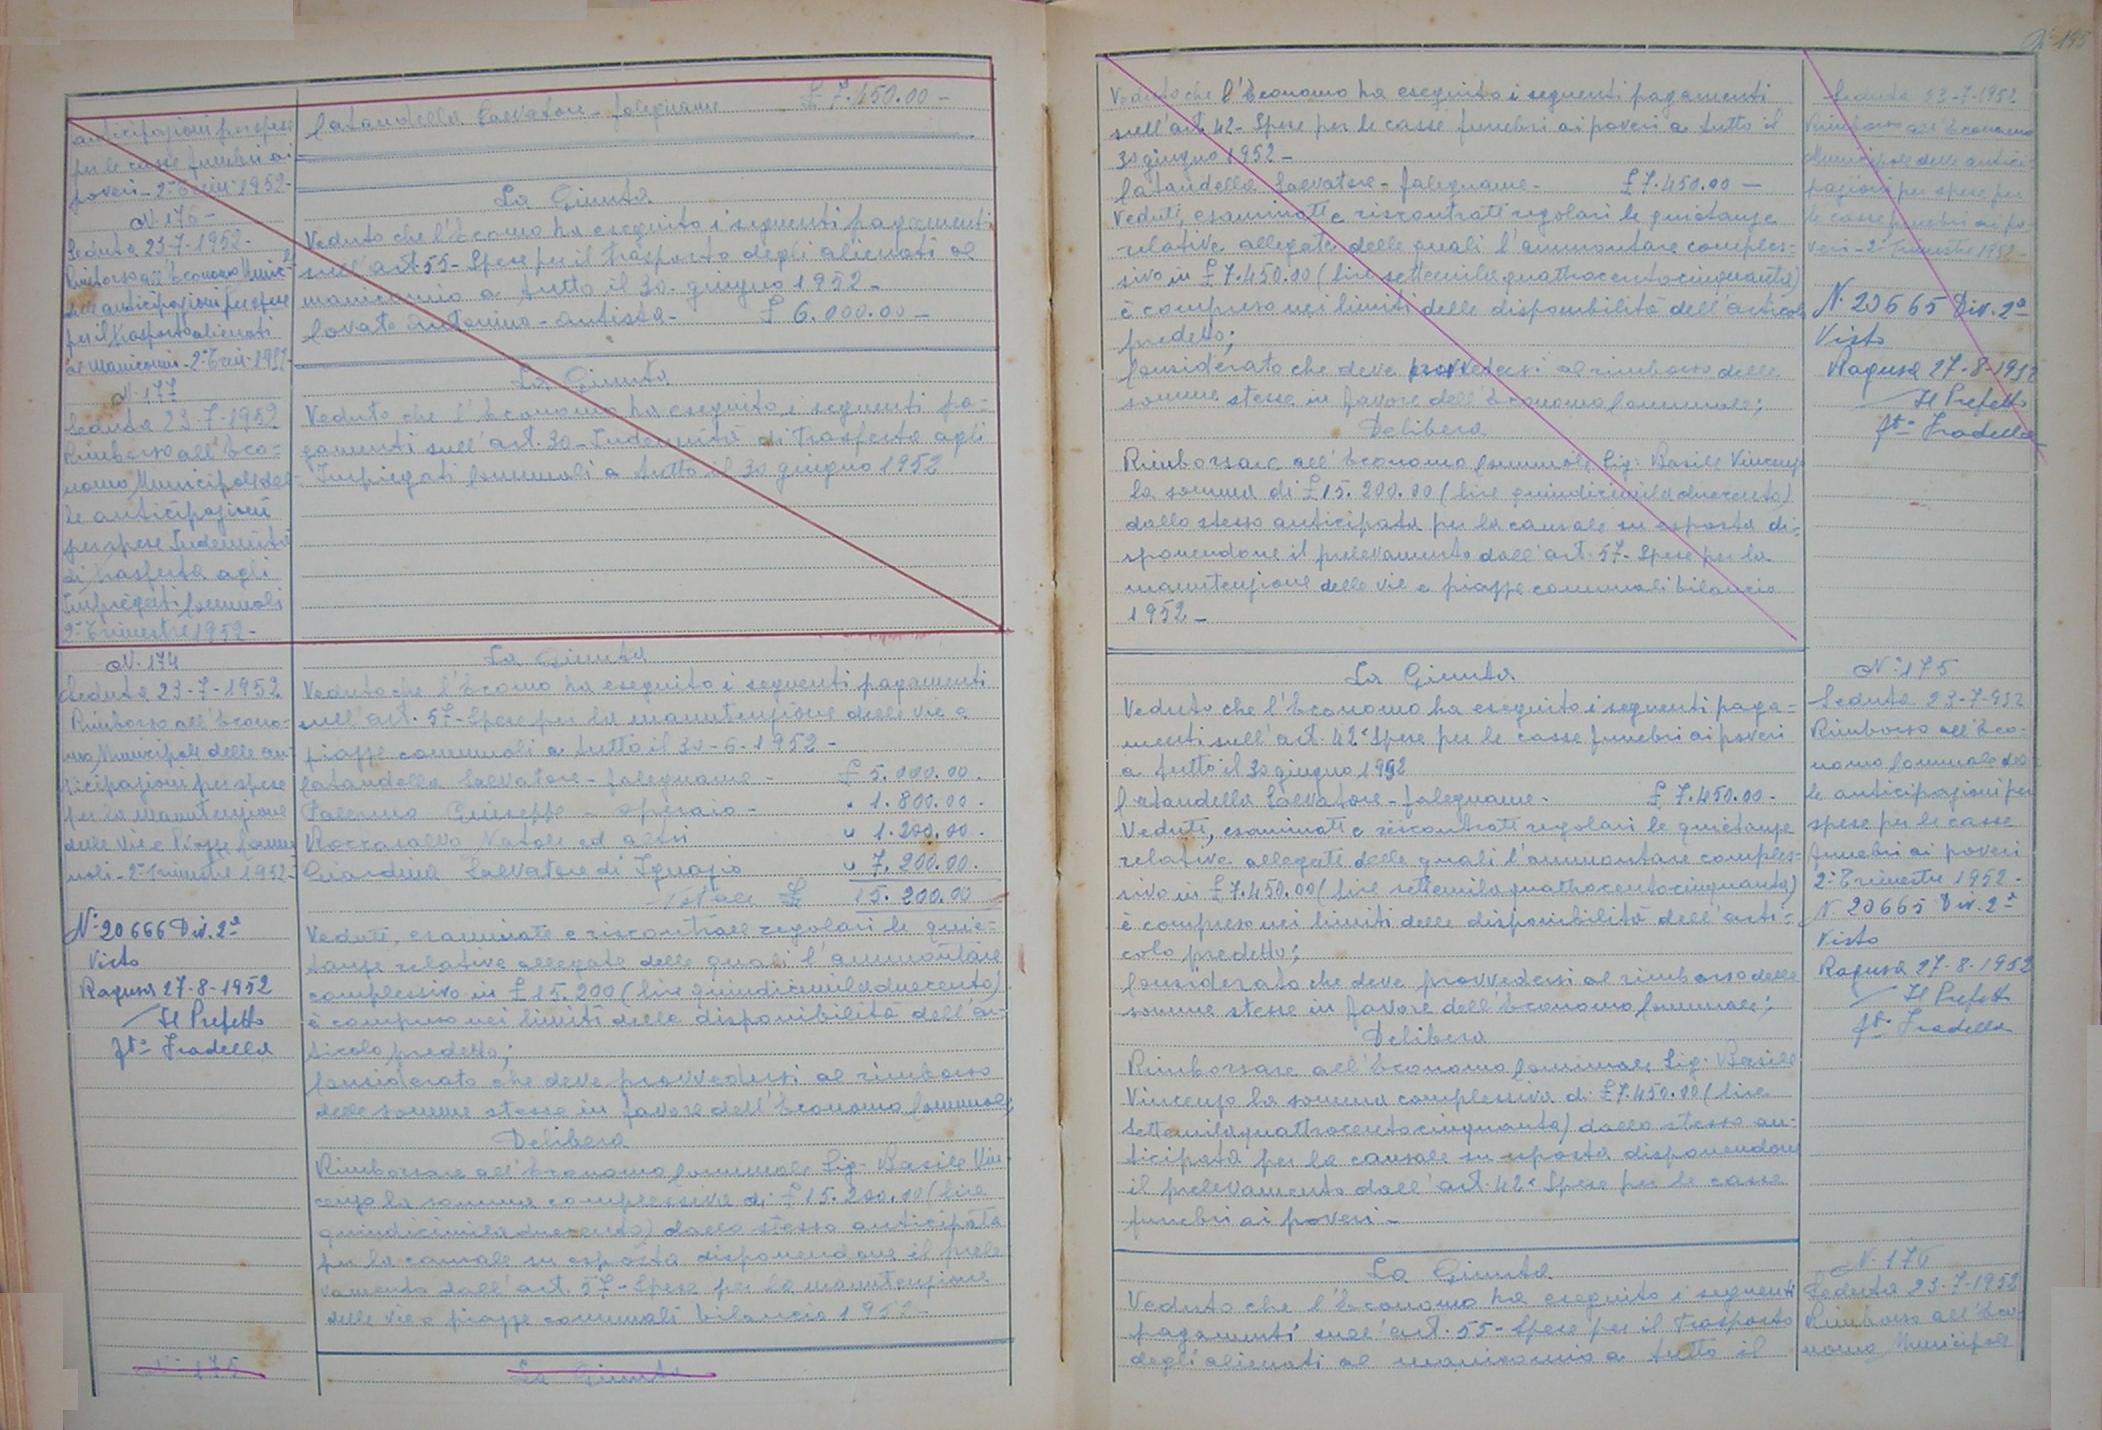 anticipazioni per spese
per le casse funebri ai
poveri - 2° Trim. 1952 -
N. 176 -
Seduta 23-7-1952 -
Rimborso all'Economo Munic.
delle anticipazioni per spese
per il trasporto alienati
ai Manicomi - 2° Trim. 1952
N. 177
Seduta 23-7-1952
Rimborso all'Eco=
nomo Municipale del=
le anticipazioni
per spese Indennità
di trasferta agli
Impiegati Comunali
2° Trimestre 1952 -
Cataudella Salvatore - falegname £ 7.450.00 -
La Giunta
Veduto che l'Ecomo ha eseguito i seguenti pagamenti
sull'art. 55 - Spese per il trasporto degli alienati al
manicomio a tutto il 30. giugno 1952 -
Lovato Antonino - autista - £ 6.000.00 -
La Giunta
Veduto che l'Economo ha eseguito i seguenti pa=
gamenti sull'art. 30 - Indennità di trasferta agli
Impiegati Comunali a tutto il 30 giugno 1952
N. 174
Seduta 23-7-1952
Rimborso all'Econo=
mo Municipale delle an=
ticipazioni per spese
per la manutenzione
delle Vie e Piazze Comu
nali - 2° Trimestre 1952 -
N° 20666 Div. 2ª
Visto
Ragusa 27-8-1952
Il Prefetto
fto Fradella
N. 175
La Giunta
Veduto che l'Ecomo ha eseguito i seguenti pagamenti
sull'art. 57 - Spese per la manutenzione delle vie e
piazze comunali a tutto il 30-6-1952 -
Cataudella Salvatore - falegname - £ 5.000.00.
Palermo Giuseppe - operaio - " 1.800.00.
Roccasalva Natale ed altri " 1.200.00.
Giardina Salvatore di Ignazio " 7.200.00.
Totale £ 15.200.00
Veduti, esaminate e riscontrate regolari le quie=
tanze relative allegate delle quali l'ammontare
complessivo in £ 15.200 (lire quindicimiladuecento)
è compreso nei limiti delle disponibilità dell'ar=
ticolo predetto;
Considerato che deve provvedersi al rimborso
delle somme stesse in favore dell'Economo Comunale;
Delibera
Rimborsare all'Economo Comunale Sig. Basile Vin=
cenzo la somma complessiva di £ 15.200.00 (lire
quindicimiladuecento) dallo stesso anticipata
per la causale su esposta disponendone il prele
vamento dall'art. 57 - Spese per la manutenzione
delle vie e piazze comunali bilancio 1952 -
La Giunta
Veduto che l'Economo ha eseguito i seguenti pagamenti
sull'art. 42 - Spese per le casse funebri ai poveri a tutto il
30 giugno 1952 -
Cataudella Salvatore - falegname - £ 7.450.00 -
Veduti, esaminati e riscontrati regolari le quietanze
relative allegate delle quali l'ammontare comples=
sivo in £ 7.450.00 (lire settemilaquattrocentocinquanta)
è compreso nei limiti delle disponibilità dell'articolo
predetto;
Considerato che deve provvedersi al rimborso delle
somme stesse in favore dell'Economo Comunale;
Delibera
Rimborsare all'Economo Comunale Sig. Basile Vincenzo
la somma di £ 15.200.00 (lire quindicimiladuecento)
dallo stesso anticipata per la causale su esposta di=
sponendone il prelevamento dall'art. 57 - Spese per la
manutenzione delle vie e piazze comunali bilancio
1952 -
La Giunta
Veduto che l'Economo ha eseguito i seguenti paga=
menti sull'art. 42 - Spese per le casse funebri ai poveri
a tutto il 30 giugno 1952
Cataudella Salvatore - falegname - £ 7.450.00 -
Veduti, esaminati e riscontrati regolari le quietanze
relative allegate delle quali l'ammontare comples=
sivo in £ 7.450.00 (lire settemilaquattrocentocinquanta)
è compreso nei limiti delle disponibilità dell'arti=
colo predetto;
Considerato che deve provvedersi al rimborso delle
somme stesse in favore dell'Economo Comunale;
Delibera
Rimborsare all'Economo Comunale Sig. Basile
Vincenzo la somma complessiva di £ 7.450.00 (lire
settemilaquattrocentocinquanta) dallo stesso an=
ticipata per la causale su esposta disponendone
il prelevamento dall'art. 42 - Spese per le casse
funebri ai poveri -
La Giunta
Veduto che l'Economo ha eseguito i seguenti
pagamenti sull'art. 55 - Spese per il trasporto
degli alienati al manicomio a tutto il
N° 195
Seduta 23-7-1952
Rimborso all'Economo
Municipale delle antici=
pazioni per spese per
le casse funebri ai po=
veri - 2° Trimestre 1952 -
N. 20665 Div. 2ª
Visto
Ragusa 27-8-1952
Il Prefetto
fto Fradella
N° 175
Seduta 23-7-952
Rimborso all'Eco=
nomo Comunale del=
le anticipazioni per
spese per le casse
funebri ai poveri
2° Trimestre 1952 -
N. 20665 Div. 2ª
Visto
Ragusa 27-8-1952
Il Prefetto
fto Fradella
N. 176
Seduta 23-7-1952
Rimborso all'Eco=
nomo Municipale